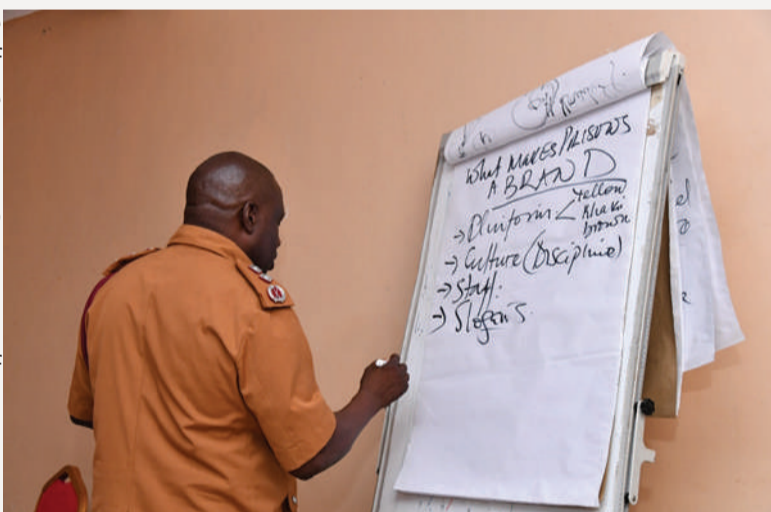 What MAKES PRISONS
A BRAND
→ Uniform < Yellow
Khaki
brown
→ Culture (Discipline)
→ Staff.
→ Slogan's